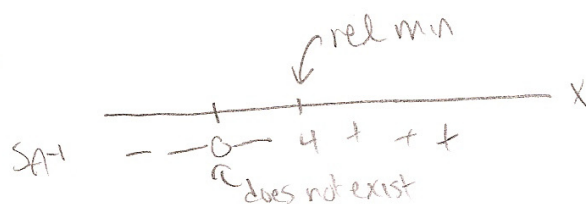 rel min
x
SA-1 - - 0 - 4 + + +
does not exist